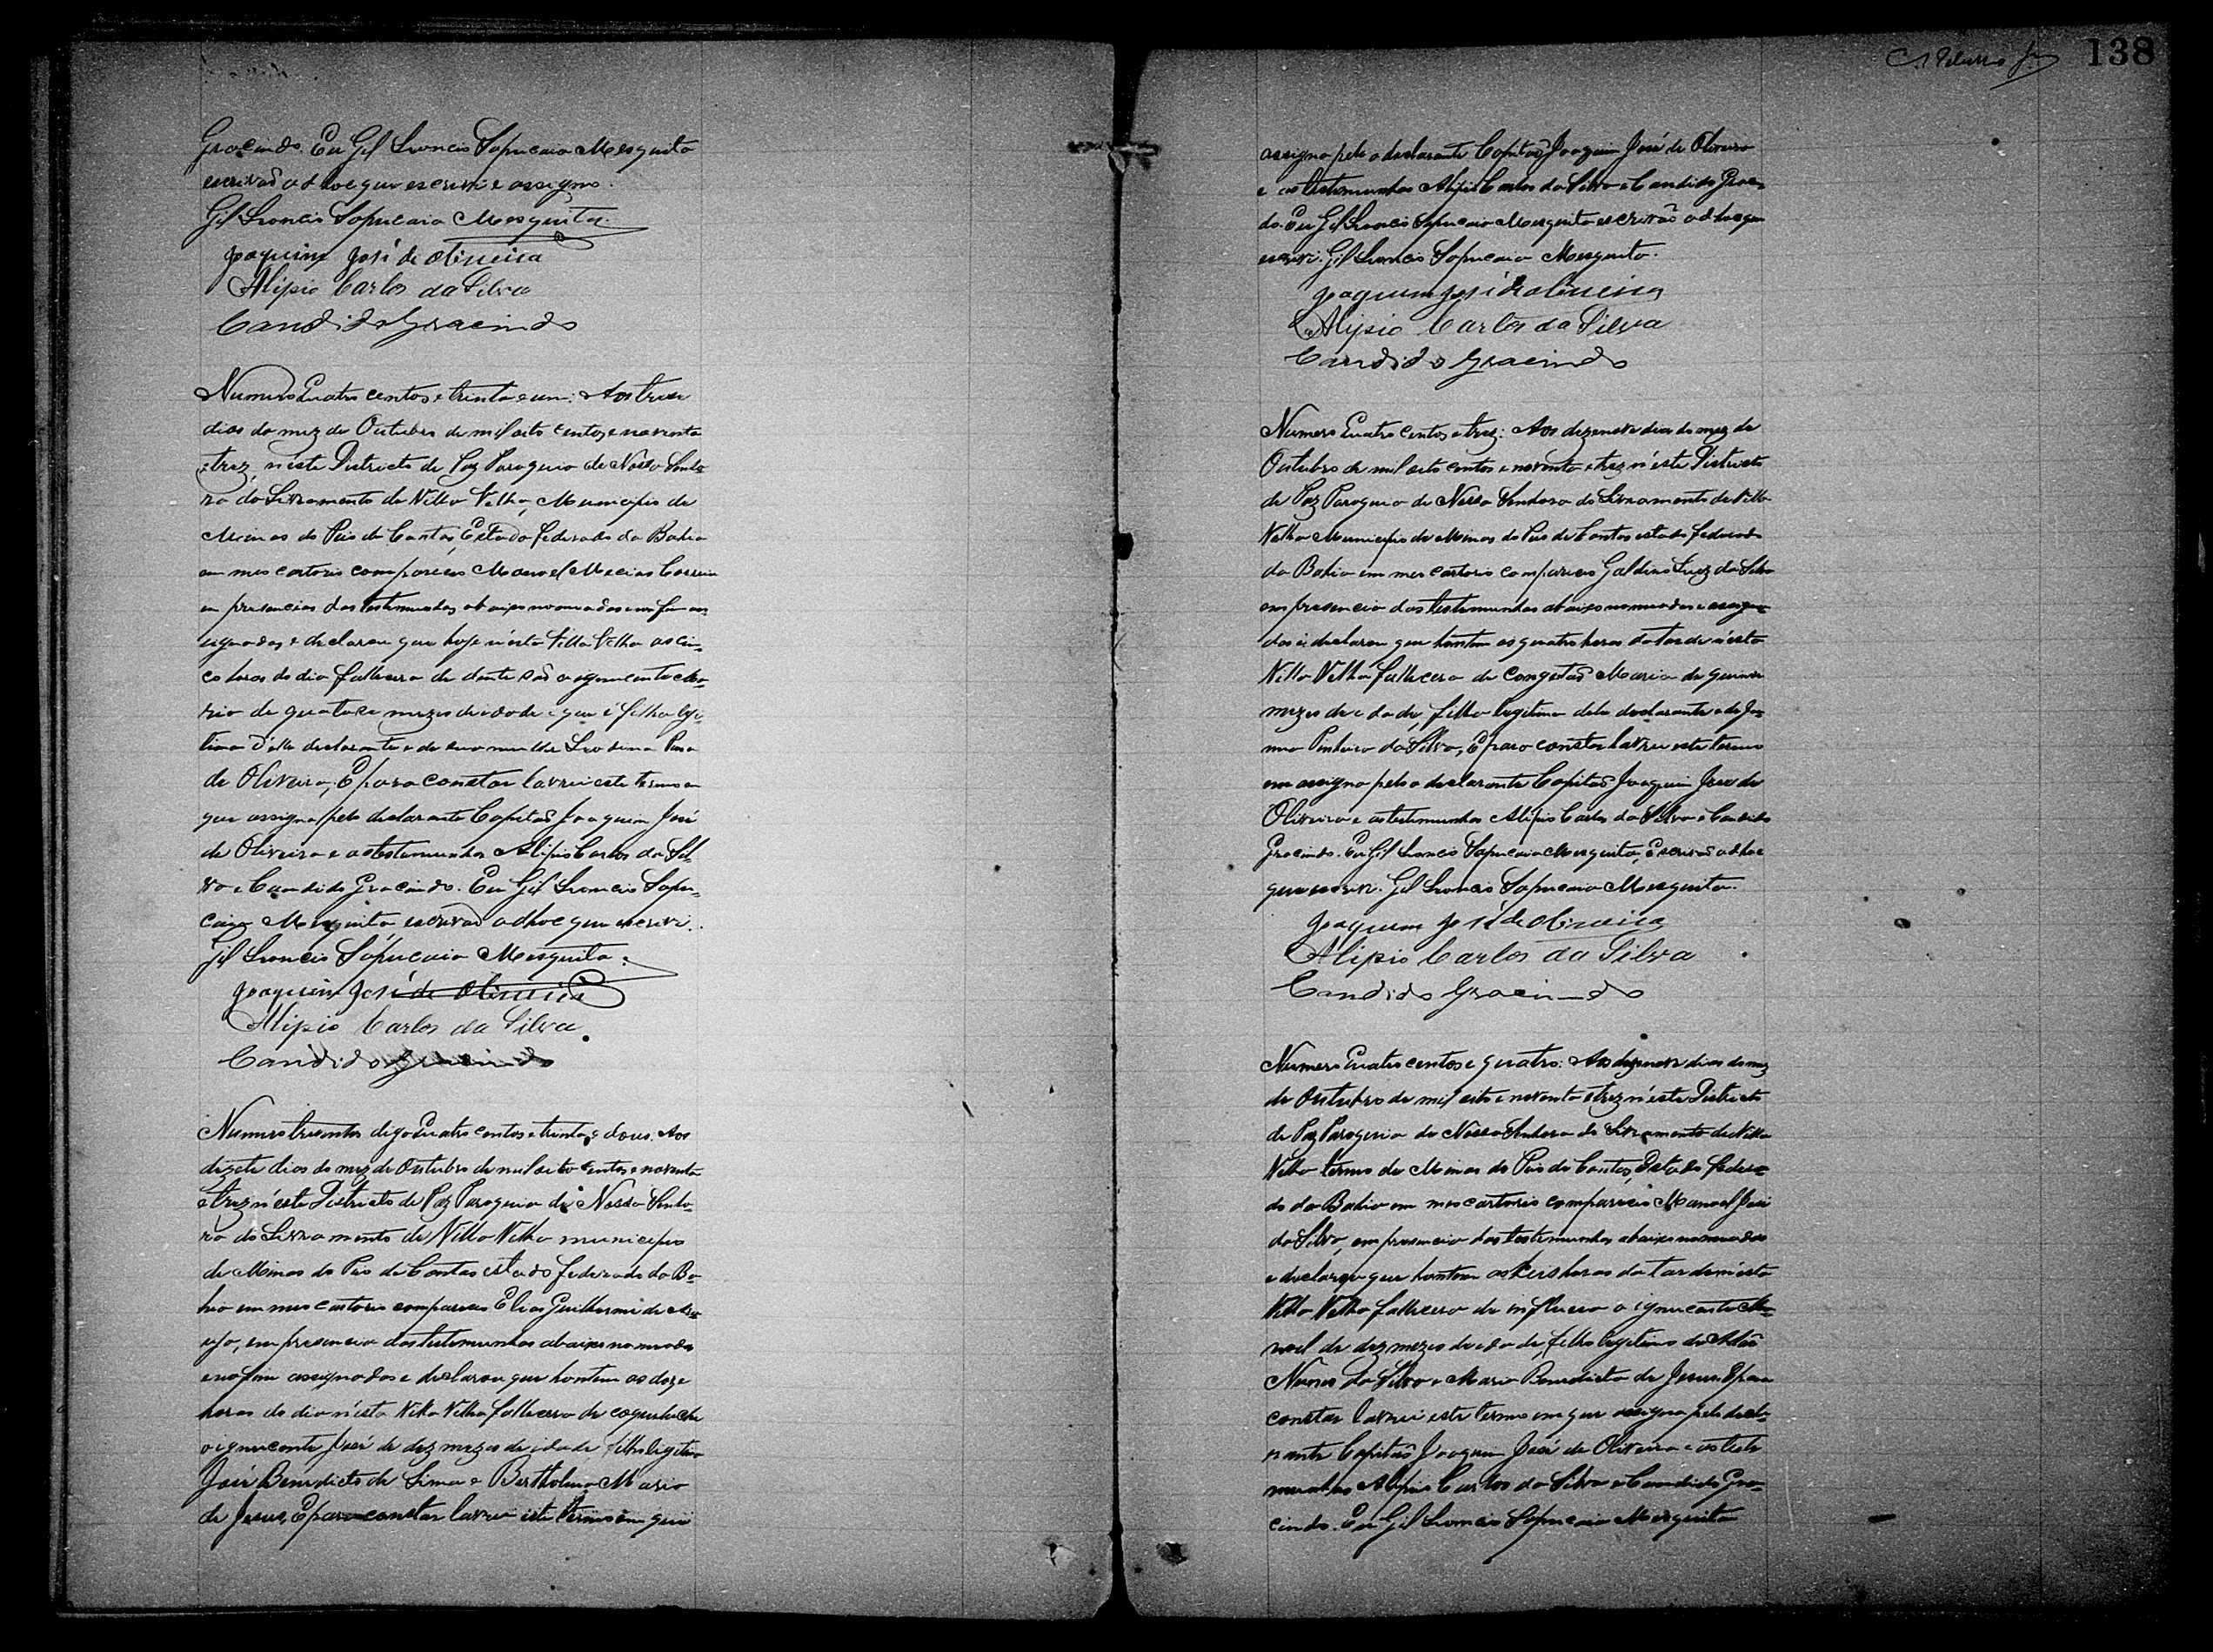 Gracindo. Eu Gil Leoncio Sapucaia Mesquita
escrivaõ ad hoc que escrevi e assigno.
Gil Leoncio Sapucaia Mesquita.
Joaquim José de Oliveira
Alipio Carlos da Silva
Candido Gracindo
Numero Quatro centos e trinta e um: Aos treze
dias do mez de Outubro de mil oito centos e noventa
e trez n'este Districto de Paz Paroquia de Nossa Senho-
ra do Livramento de Villa Velha, Municipio de
Minas do Rio de Contas, Estado federado da Bahia
em meo cartorio compareceo Manoel Mecias Correia
em presencia das testemunhas abaixo nomeadas e no fim as-
signadas e declarou que hoje n'esta Villa Velha as cin-
co horas do dia fallecera de dentesaõ a ignucente Ma-
ria de quatorze mezes de idade e que é filha legi-
tima d'elle declarante e de sua mulher Leodina Rosa
de Oliveira; E para constar lavrei este termo em
que assigna pelo declarante Capitaõ Joaquim José
de Oliveira e as testemunhas Alipio Carlos da Sil-
va e Candido Gracindo. Eu Gil Leoncio Sapu-
caia Mesquita escrivaõ ad hoc que escrevi.
Gil Leoncio Sapucaia Mesquita.
Joaquim José de Oliveira
Alipio Carlos da Silva.
Candido Gracindo
Numero trezentos digo Quatro centos e trinta e dous. Aos
dezete dias do mez de Outubro de mil oito centos e noventa
e trez n'este Districto de Paz Paroquia de Nossa Senho-
ra do Livramento de Villa Velha municipio
de Minas do Rio de Contas estado federado da Ba-
hia em meo cartorio compareceo Elias Guilherme de
em presencia das testemunhas abaixo nomeadas
e no fim assignadas e declarou que hontem as doze
horas do dia n'esta Villa Velha fallecera de coqueluche
o ignucente José de dez mezes de idade, filho legitimo
José Benedicto de Lima e Bertholina Maria
de Jesus, E para constar lavrei este termo em que
A 138
assigna pelo o declarante Capitaõ Joaquim José de Oliveira
e as testemunhas Alipio Carlos da Silva e Candido Gracin-
do. Eu Gil Leoncio Sapucaia Mesquita escrivaõ ad hoc que
escrevi. Gil Leoncio Sapucaia Mesquita.
Joaquim José de Oliveira
Alipio Carlos da Silva
Candido Gracindo
Numero Quatro centos e trez: Aos dezenove dias do mez de
Outubro de mil oito centos e noventa e trez n'este Districto
de Paz Paroquia de Nossa Senhora do Livramento de Villa
Velha Municipio de Minas do Rio de Contas estado federado
da Bahia em meo cartorio compareceo Galdino Luiz da Silva
em presencia das testemunhas abaixo nomeadas e assigna-
das e declarou que hontem as quatro horas da tarde n'esta
Villa Velha fallecera de congestaõ Maria de quinze
mezes de idade, filha legitima delle declarante e de Jo-
Pinheiro da Silva, E para constar lavrei este termo
em assigna pelo o declarante Capitaõ Joaquim José de
Oliveira e as testemunhas Alipio Carlos da Silva e Candido
Gracindo. Eu Gil Leoncio Sapucaia Mesquita Escrivaõ ad hoc
que escrevi. Gil Leoncio Sapucaia Mesquita.
Joaquim José de Oliveira
Alipio Carlos da Silva
Candido Gracindo
Numero Quatro centos e quatro: Aos dezenove dias do mez
de Outubro de mil oito e noventa e trez n'este Districto
de Paz Paroquia de Nossa Senhora do Livramento de Villa
Velha termo de Minas do Rio de Contas, Estado federa-
do da Bahia em meo cartorio compareceo Manoel José
da Silva, em presencia das testemunhas abaixo nomeadas
e declarou que hontem as seis horas da tarde n'esta
Villa Velha fallecera de o ignucente Ma-
noel de dez mezes de idade, filho legitimo de Adaõ
Nunes da Silva e Maria Benedicta de Jesus. E para
constar lavrei este termo em que assigna pelo decla-
rante Capitaõ Joaquim José de Oliveira e as teste-
munhas Alipio Carlos da Silva e Candido Gra-
cindo. Eu Gil Leoncio Sapucaia Mesquita